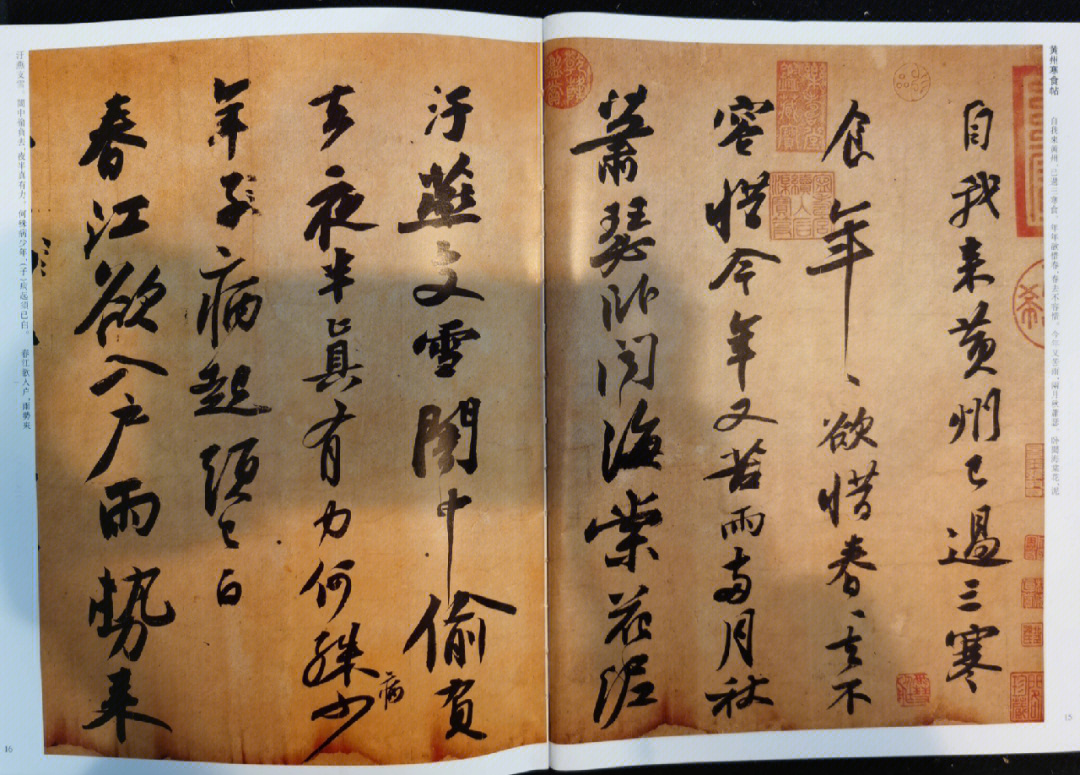 黄州寒食帖
自我來黄州，已過三寒食。年年欲惜春，春去不容惜。今年又苦雨，兩月秋蕭瑟。卧聞海棠花，泥
15
自我來黄州已過三寒
食年〻欲惜春〻去不
容惜今年又苦雨兩月秋
蕭瑟卧聞海棠花泥
汙燕支雪闇中偷負
去夜半真有力何殊少
病
年子病起頭已白
春江欲入户雨勢來
汙燕支雪。闇中偷負去，夜半真有力。何殊病少年，（子）病起頭已白。 春江欲入户，雨勢來
16